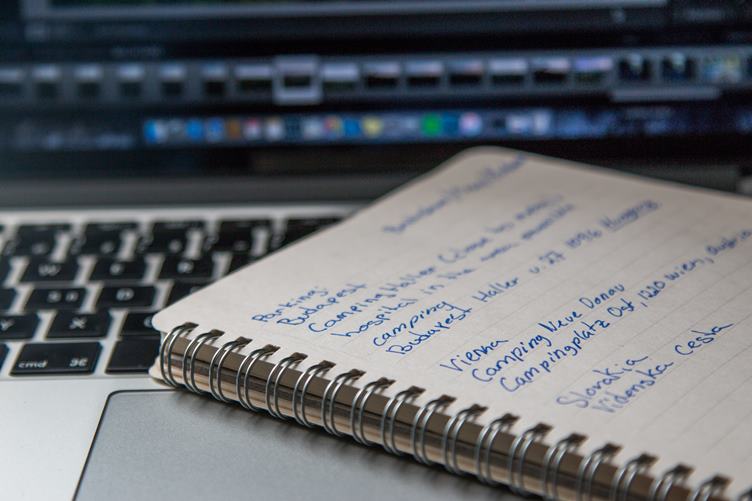 Parking:
Budapest
Camping Haller (close to
hospital in the
camping
Budapest Haller u. 27 1096
Vienna
Camping Neue Donau
Campingplatz Ost, 1220 Wien, Austria
Slovakia
Videnska cesta
W
S
D
Y
X
cmd ⌘